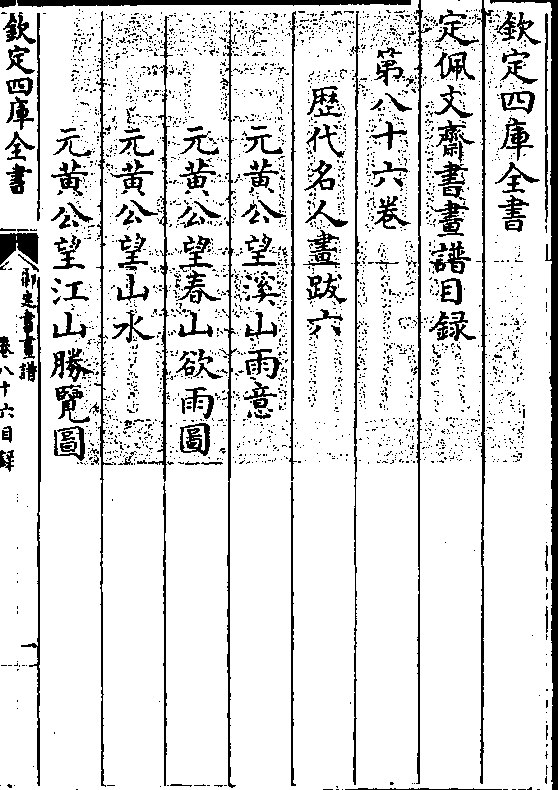 欽定四庫全書
定佩文齋書畫譜目録
第八十六卷
歴代名人畫跋六
元黄公望溪山雨意
元黄公望春山欲雨圖
元黄公望山水
元黄公望江山勝覽圖
欽定四庫全書
御定書畫譜
卷八十六目録
一